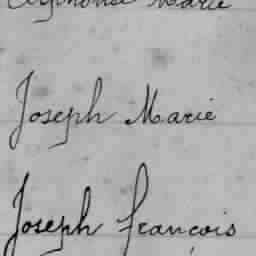 Alphonse Marie
Joseph Marie
Joseph François